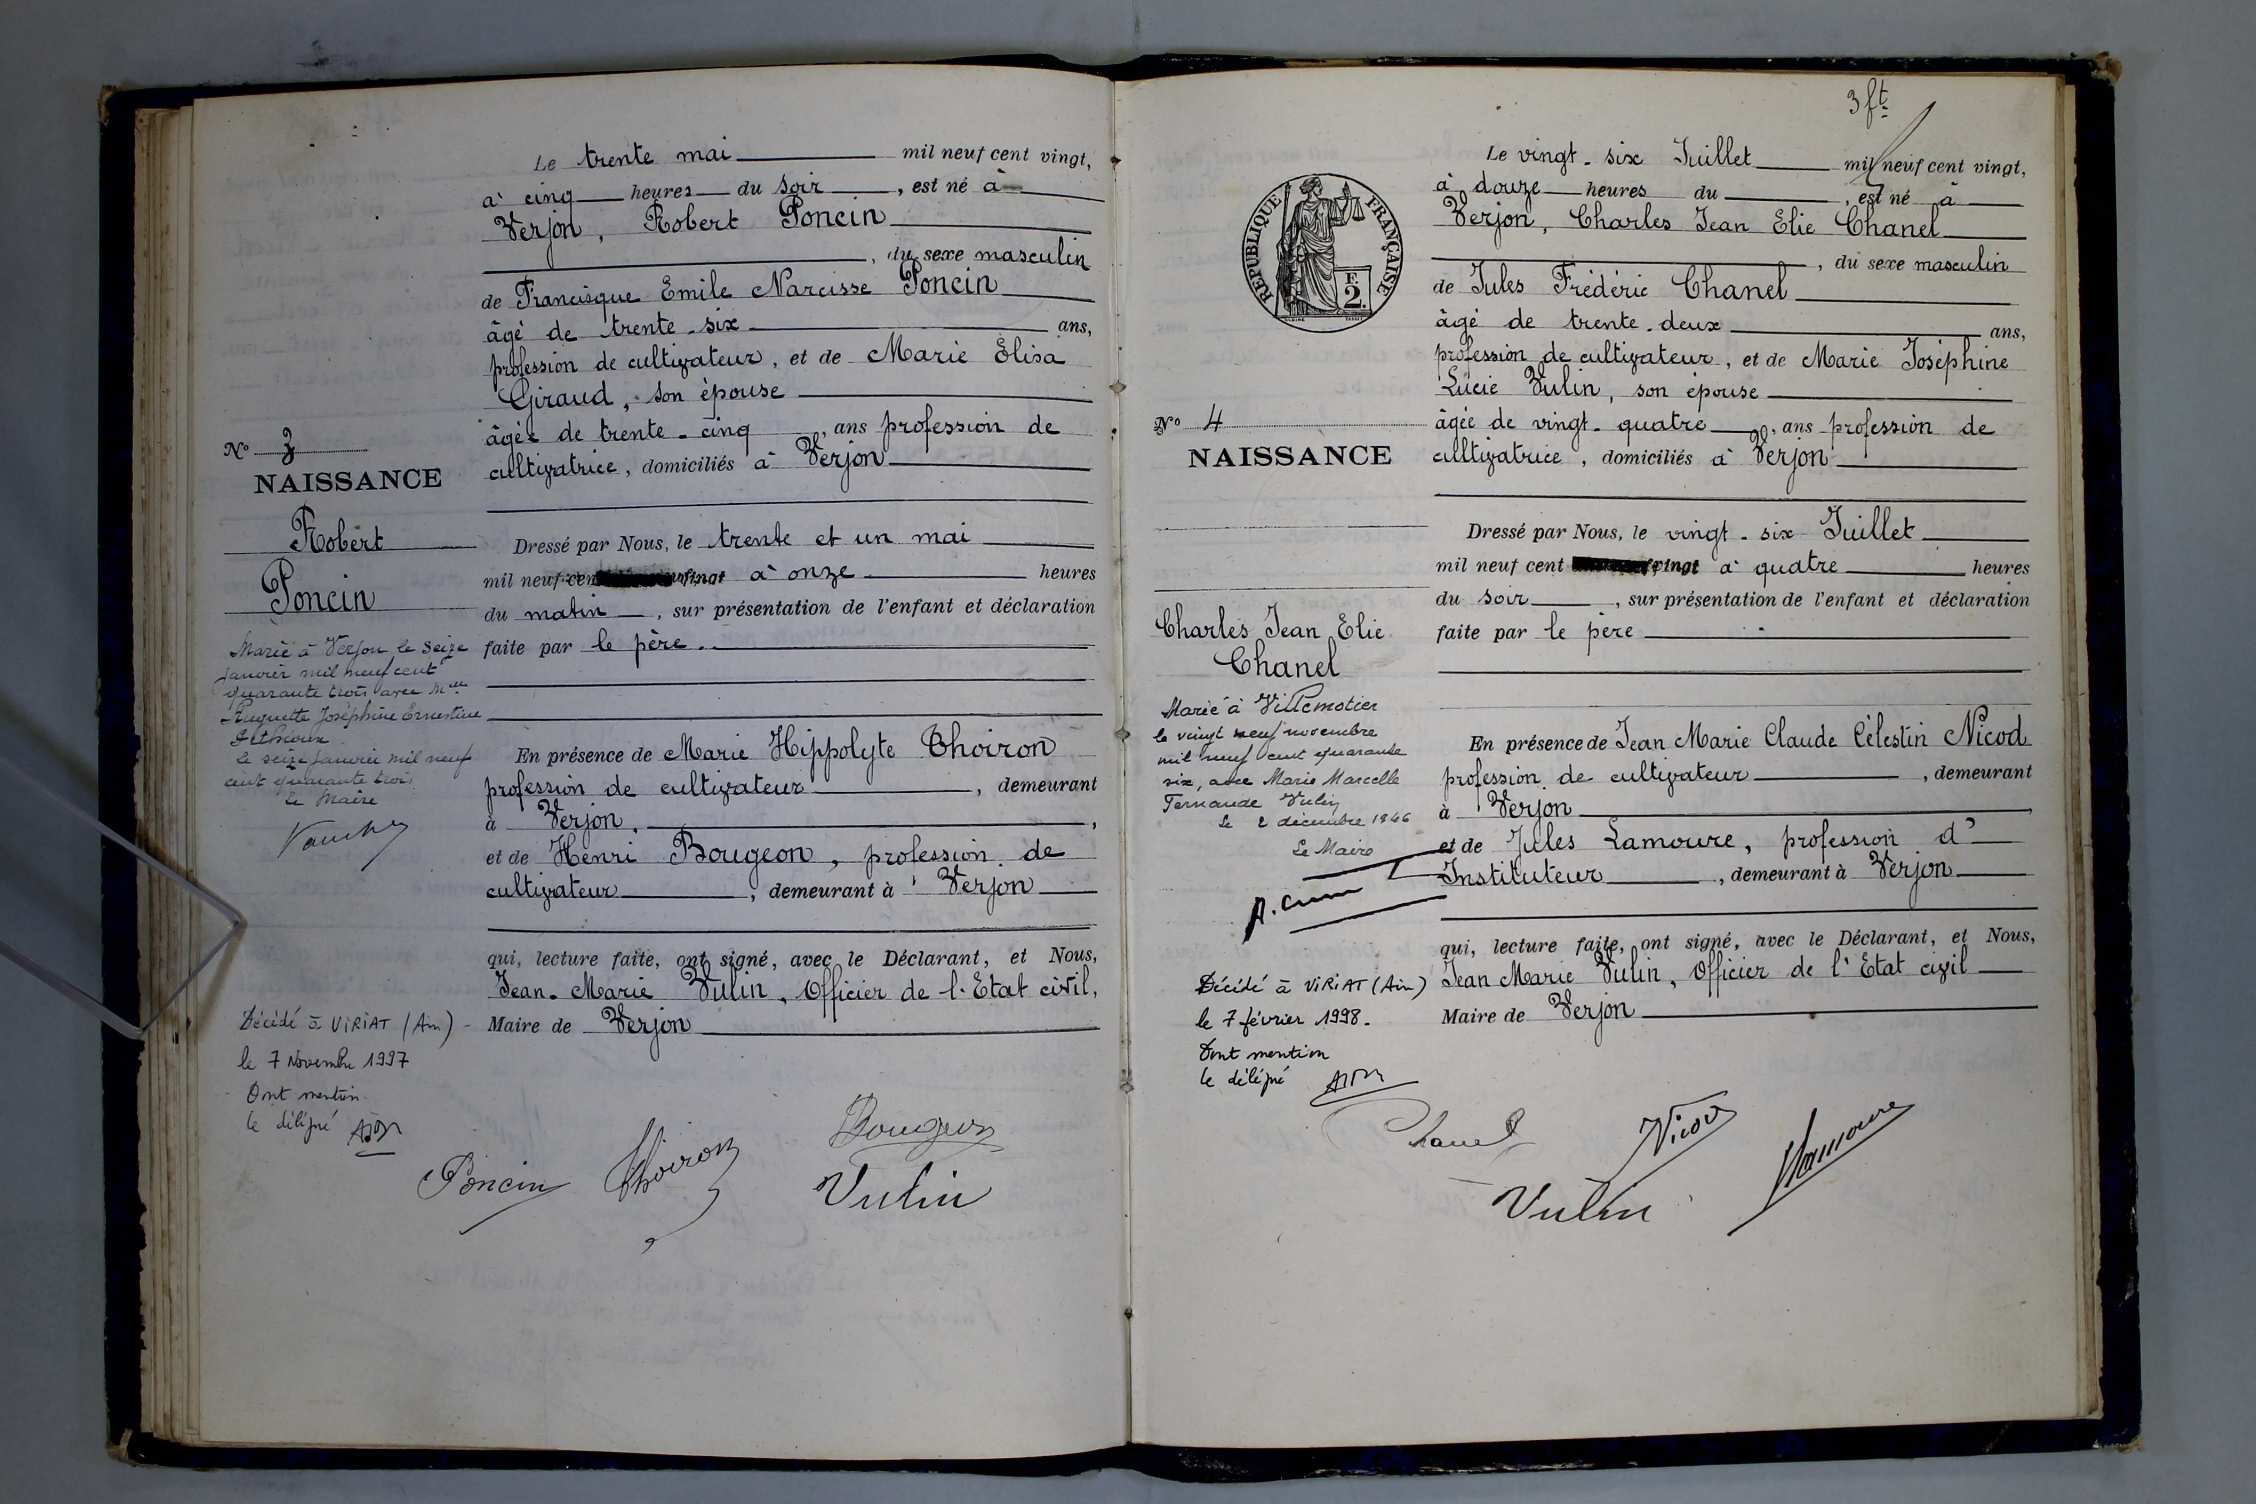 N° 3
NAISSANCE
Robert
Poncin
Marié à Verjon le seize
janvier mil neuf cent
quarante trois avec Mlle
Huguette Joséphine Ernestine
le seize janvier mil neuf
cent quarante trois
Le Maire
Décédé à VIRIAT (Ain) -
le 7 Novembre 1997
Dont mention
le délégué
Le trente mai mil neuf cent vingt,
à cinq heures du soir, est né à
Verjon, Robert Poncin
, du sexe masculin
de Francisque Emile Narcisse Poncin
âgé de trente-six ans,
profession de cultivateur, et de Marie Elisa
Giraud, son épouse
âgée de trente-cinq, ans profession de
cultivatrice, domiciliés à Verjon
Dressé par Nous, le trente et un mai
mil neuf cent vingt à onze heures
du matin, sur présentation de l'enfant et déclaration
faite par le père.
En présence de Marie Hippolyte Thoiron
profession de cultivateur, demeurant
à Verjon.,
et de Henri Bougeon, profession de
cultivateur, demeurant à Verjon
qui, lecture faite, ont signé, avec le Déclarant, et Nous,
Jean-Marie Vulin, Officier de l'Etat civil,
Maire de Verjon
Poncin Thoiron Bougeon
Vulin
3 ft
REPUBLIQUE FRANÇAISE
F.
2.
N° 4
NAISSANCE
Charles Jean Elie
Chanel
Marié à Villemotier
le vingt neuf novembre
mil neuf cent quarante
six, avec Marie Marcelle
Fernande Vulin
Le 2 décembre 1946
Le Maire
Décédé à VIRIAT (Ain)
le 7 février 1998.
Dont mention
le délégué
Le vingt-six Juillet mil neuf cent vingt,
à douze heures du, est né à
Verjon, Charles Jean Elie Chanel
, du sexe masculin
de Jules Frédéric Chanel
âgé de trente-deux ans,
profession de cultivateur, et de Marie Joséphine
Lucie Vulin, son épouse
âgée de vingt-quatre, ans profession de
cultivatrice, domiciliés à Verjon
Dressé par Nous, le vingt-six Juillet
mil neuf cent vingt à quatre heures
du soir, sur présentation de l'enfant et déclaration
faite par le père
En présence de Jean Marie Claude Célestin Nicod
profession de cultivateur, demeurant
à Verjon,
et de Jules Lamoure, profession d'
Instituteur, demeurant à Verjon
qui, lecture faite, ont signé, avec le Déclarant, et Nous,
Jean Marie Vulin, Officier de l'Etat civil
Maire de Verjon
Chanel Nicod Lamoure
Vulin